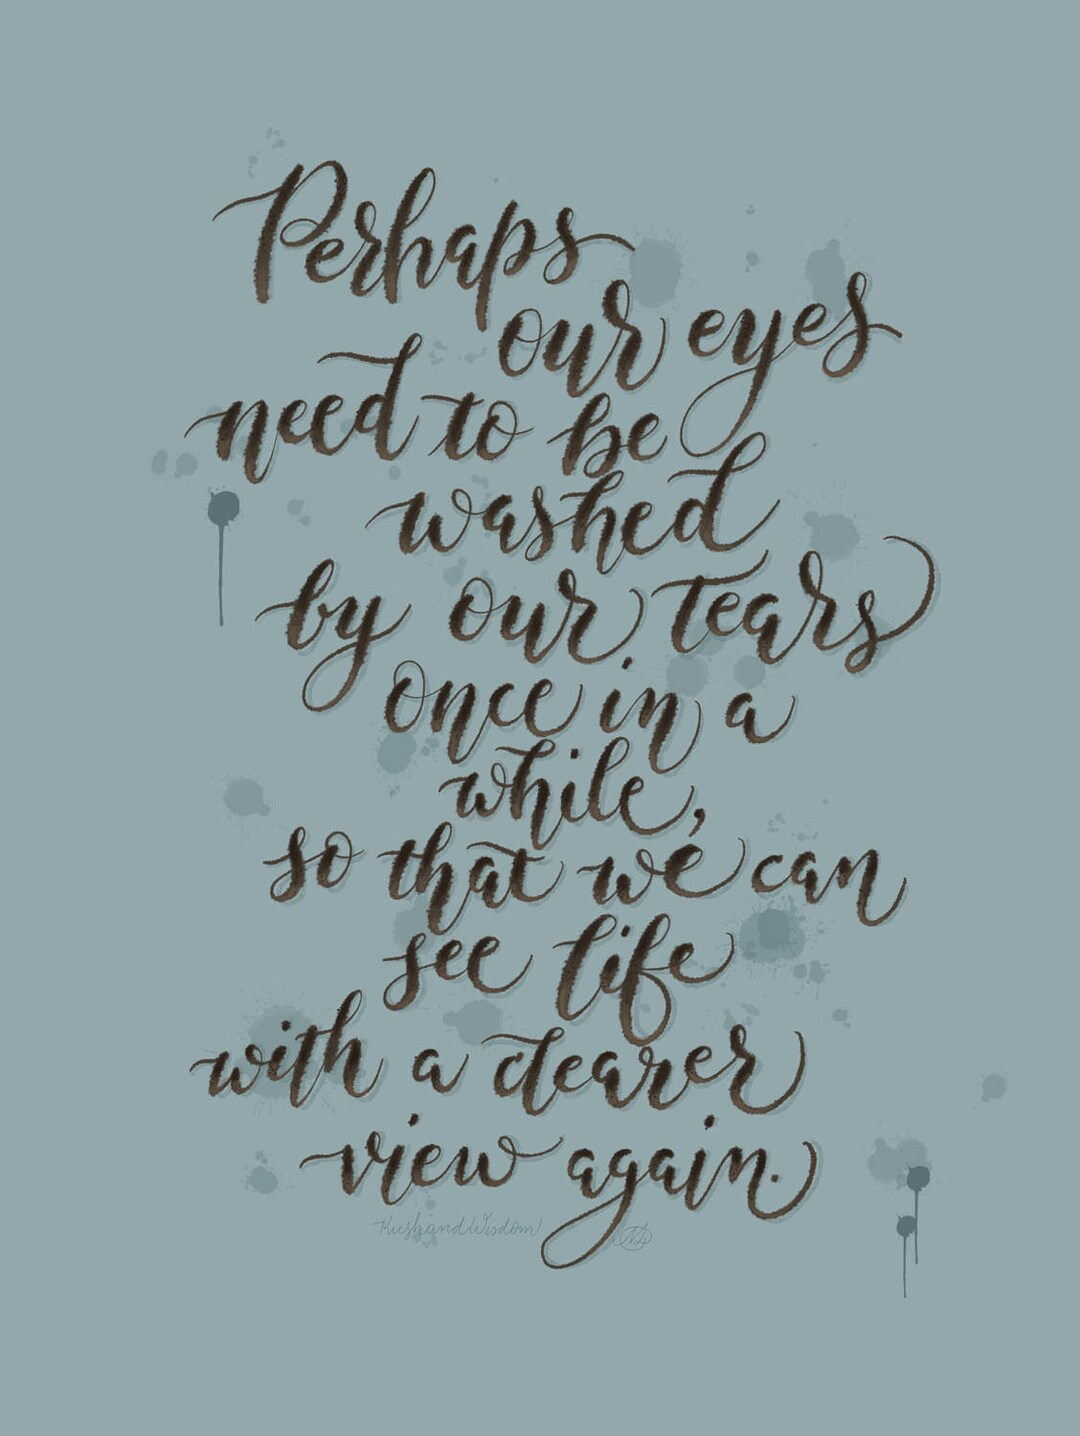 Perhaps
our eyes
need to be
washed
by our tears
once in a
while,
so that we can
see life
with a clearer
view again.